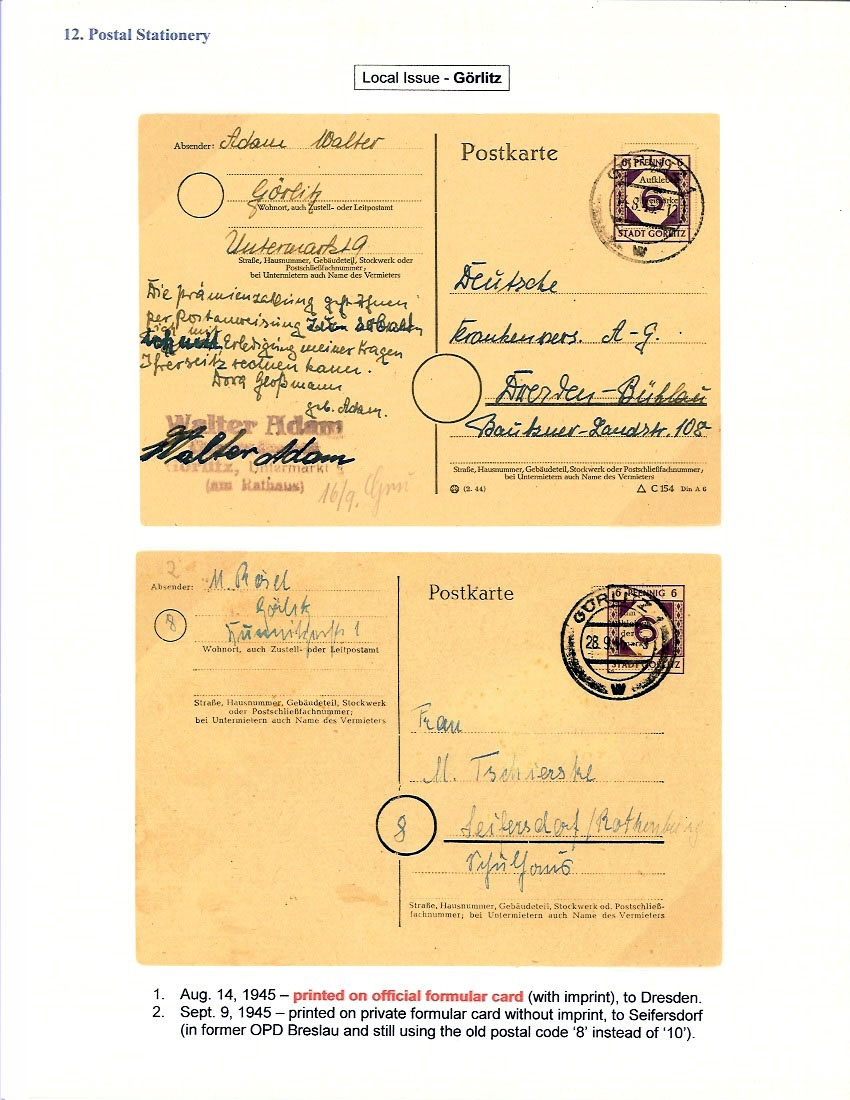 12. Postal Stationery
Local Issue - Görlitz
Absender: Adam Walter
Görlitz
Wohnort, auch Zustell- oder Leitpostamt
Untermarkt 9
Straße, Hausnummer, Gebäudeteil, Stockwerk oder
Postschließfachnummer;
bei Untermietern auch Name des Vermieters
Die Prämienzahlung geht Ihnen
per Postanweisung
Erledigung meiner Fragen
Ihrerseits rechnen kann.
Dora Großmann
geb. Adam.
Walter Adam
Görlitz, Untermarkt 9
(am Rathaus)
Walter Adam
16/9.
Postkarte
6 PFENNIG 6
Aufkleben
6
STADT GÖRLITZ
Deutsche
Krankenvers. A-G.
Dresden-Bühlau
Bautzner-Landstr. 108
Straße, Hausnummer, Gebäudeteil, Stockwerk oder Postschließfachnummer;
bei Untermietern auch Name des Vermieters
(2. 44)
C 154 Din A 6
2
Absender: M. Rösel
Görlitz
8
Wohnort, auch Zustell- oder Leitpostamt
Straße, Hausnummer, Gebäudeteil, Stockwerk
oder Postschließfachnummer;
bei Untermietern auch Name des Vermieters
Postkarte
6 PFENNIG 6
6
STADT GÖRLITZ
GÖRLITZ 1
28.9.
Frau
M. Tschierske
8
Seifersdorf/Rothenburg
Schulhaus
Straße, Hausnummer, Gebäudeteil, Stockwerk od. Postschließ-
fachnummer; bei Untermietern auch Name des Vermieters
1. Aug. 14, 1945 – printed on official formular card (with imprint), to Dresden.
2. Sept. 9, 1945 – printed on private formular card without imprint, to Seifersdorf
(in former OPD Breslau and still using the old postal code ‘8’ instead of ‘10’).